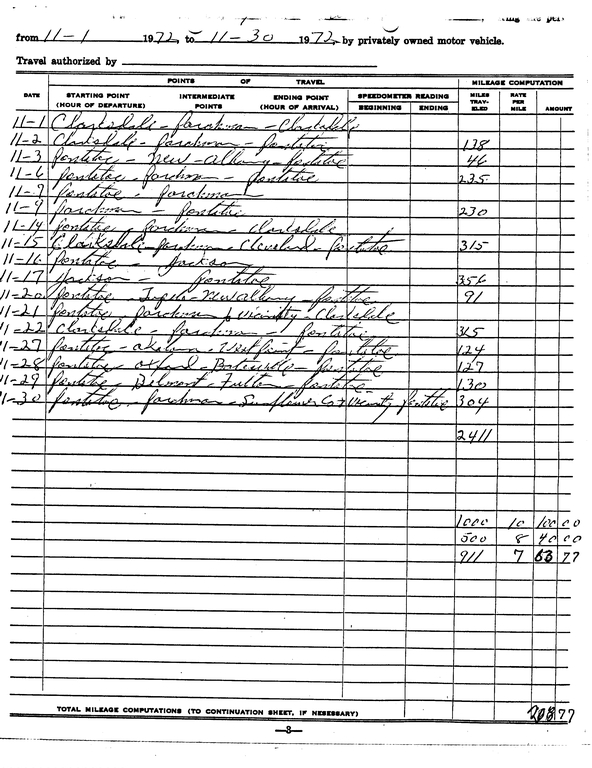 from 11-1 1972, to 11-30 1972, by privately owned motor vehicle.
Travel authorized by
POINTS OF TRAVEL MILEAGE COMPUTATION
DATE STARTING POINT (HOUR OF DEPARTURE) INTERMEDIATE POINTS ENDING POINT (HOUR OF ARRIVAL) SPEEDOMETER READING BEGINNING ENDING MILES TRAVELED RATE PER MILE AMOUNT
11-1 Clarksdale - Parchman - Clarksdale
11-2 Clarksdale - Parchman - Pontotoc 138
11-3 Pontotoc - New Albany - Pontotoc 46
11-6 Pontotoc - Parchman - Pontotoc 235
11-7 Pontotoc - Parchman
11-9 Parchman - Pontotoc 230
11-14 Pontotoc - Parchman - Clarksdale
11-15 Clarksdale - Parchman - Cleveland - Pontotoc 315
11-16 Pontotoc - Jackson
11-17 Jackson - Pontotoc 356
11-20 Pontotoc - Tupelo - New Albany - Pontotoc 91
11-21 Pontotoc Parchman & Vicinity - Clarksdale
11-22 Clarksdale - Parchman - Pontotoc 315
11-27 Pontotoc - - West Point - Pontotoc 124
11-28 Pontotoc - Oxford - Batesville - Pontotoc 127
11-29 Pontotoc - Belmont - Fulton - Pontotoc 130
11-30 Pontotoc - Parchman - Sunflower Co + Vicinity Pontotoc 304
2411
1000 10 100 00
500 8 40 00
911 7 63 77
TOTAL MILEAGE COMPUTATIONS (TO CONTINUATION SHEET, IF NESESSARY) 203 77
-3-